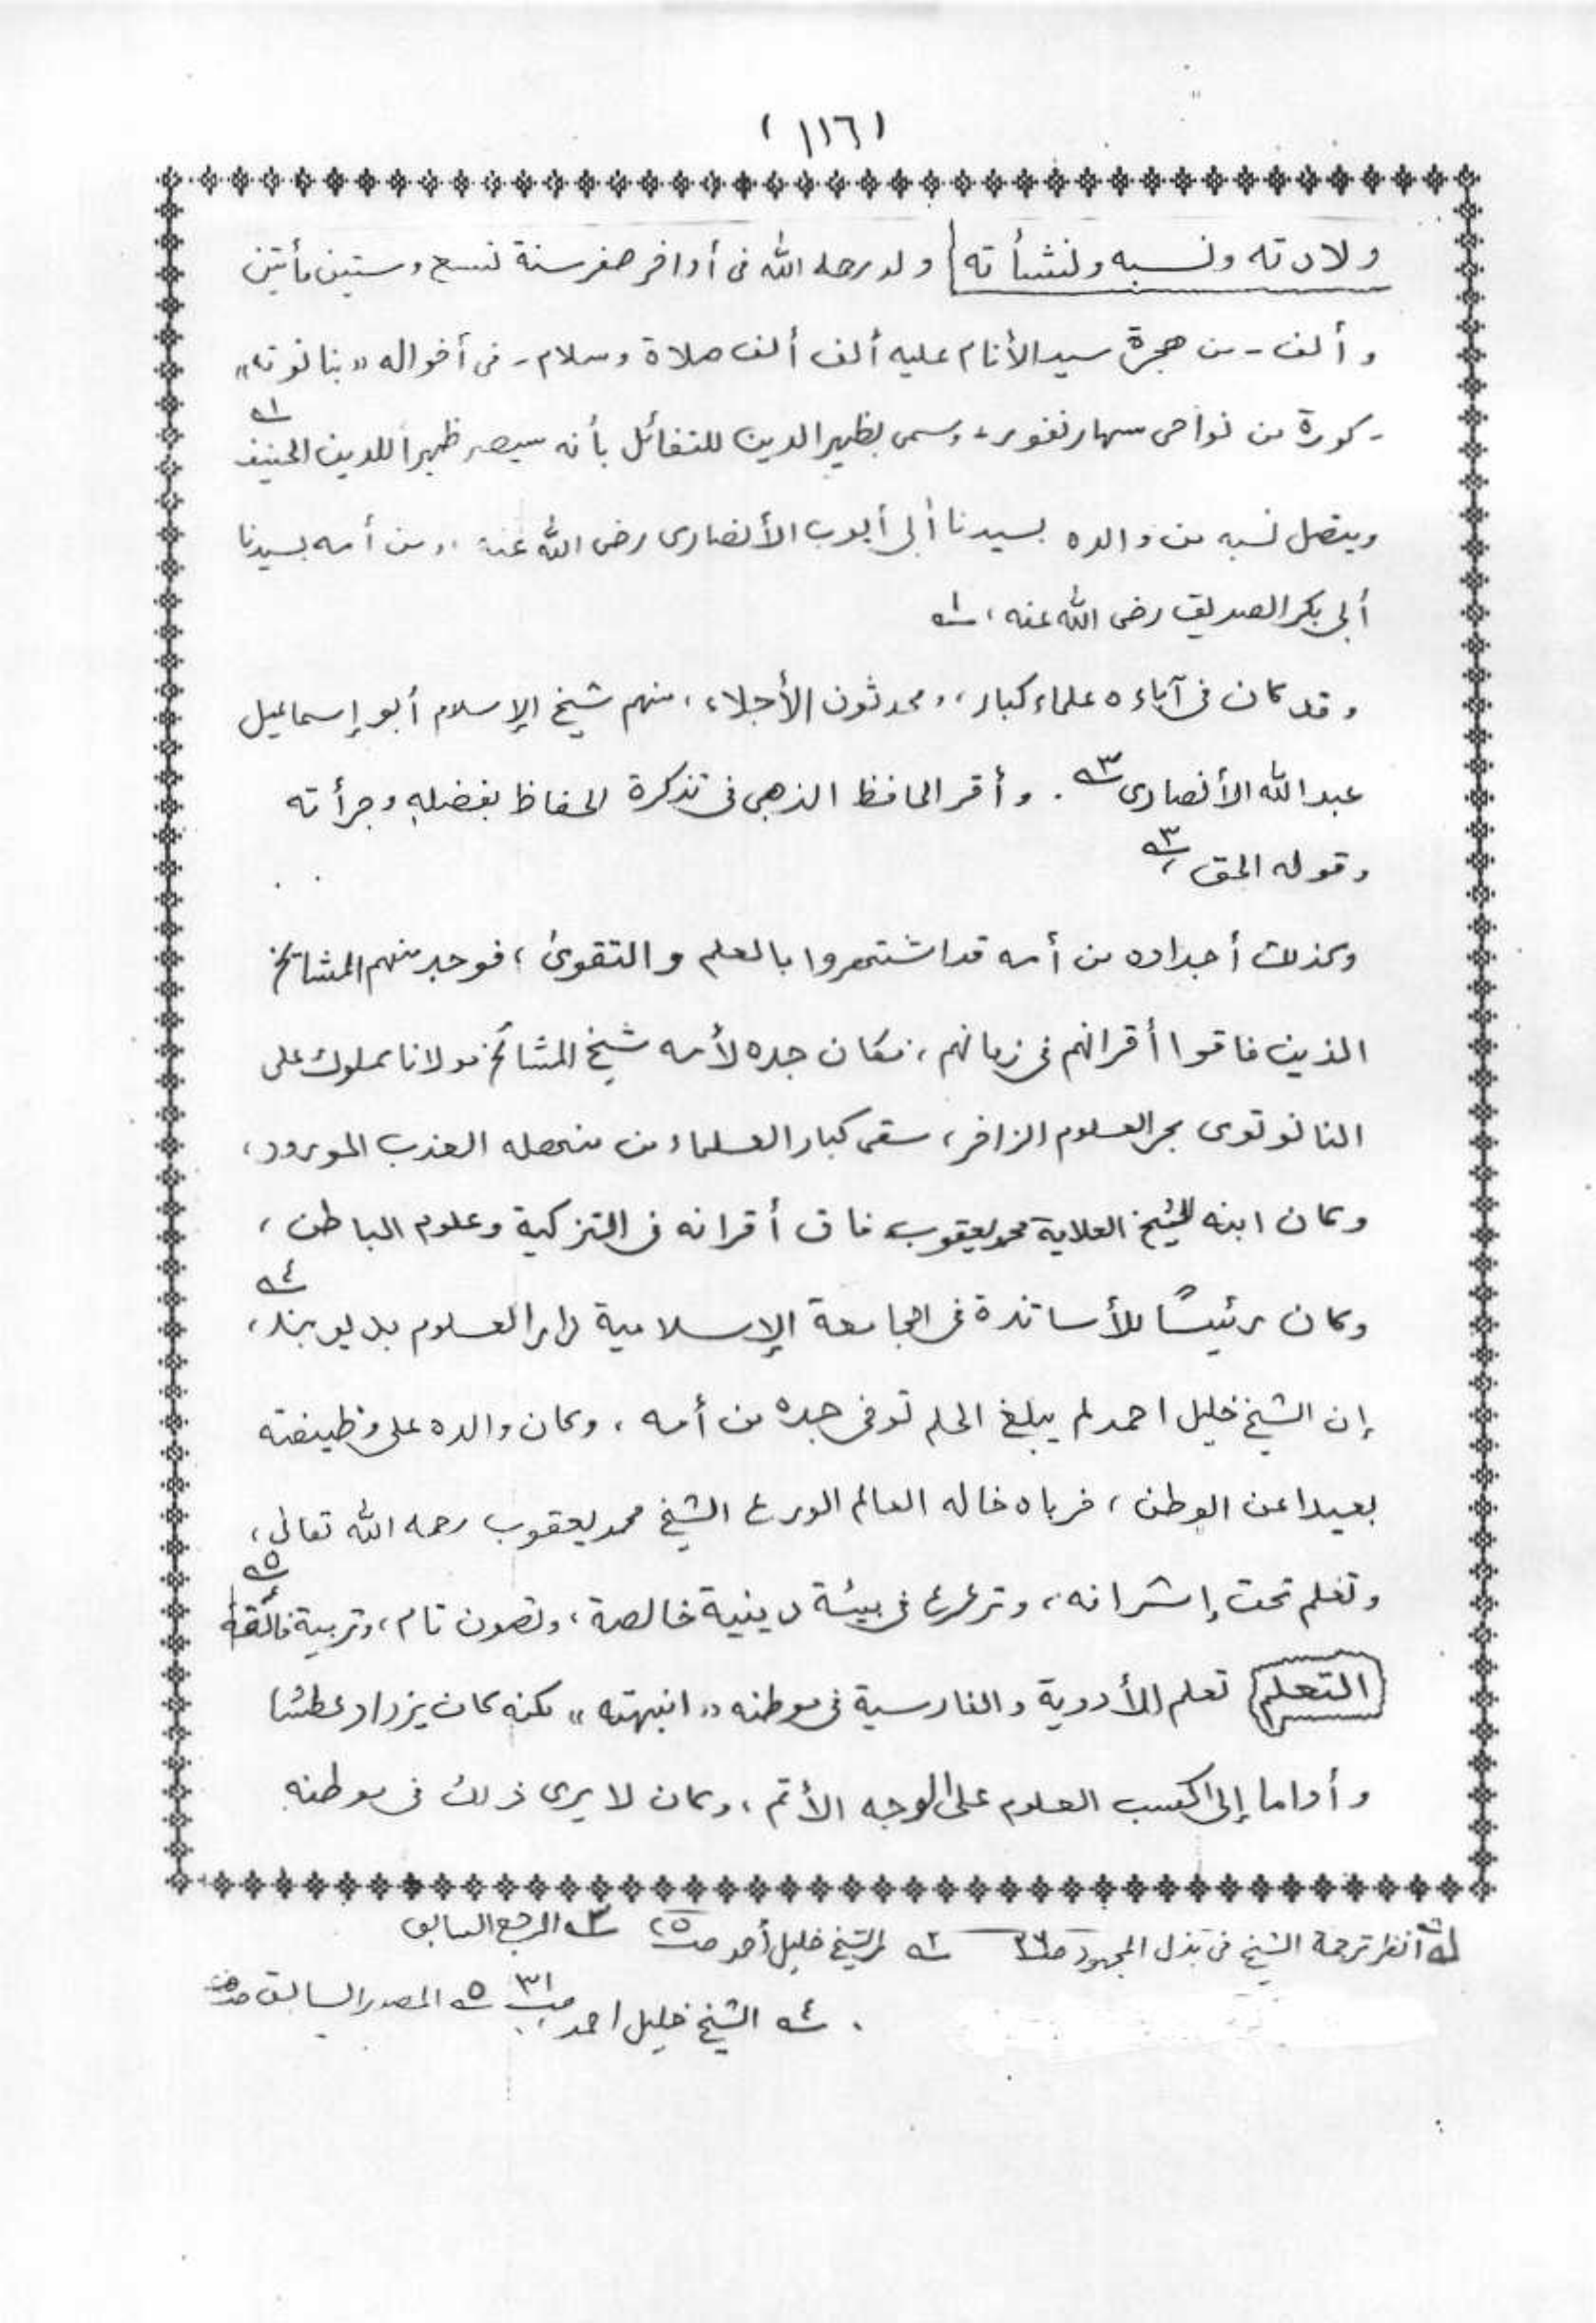 (١١٦)
ولادته ونسبه ونشأته ولد رحمه الله في أواخر صفر سنة تسع وستين مأتين
وألف - من هجرة سيد الأنام عليه ألف ألف صلاة وسلام - في أخواله «بنانوته»
- كورة من نواحى سهارنفور - وسمى بظهير الدين للتفائل بأنه سيصير ظهيراً للدين الحنيف ١
ويتصل نسبه من والده بسيدنا أبى أيوب الأنصارى رضى الله عنه، ومن أمه بسيدنا
أبى بكر الصديق رضى الله عنه، ١
وقد كان في آباءه علماء كبار، ومحدثون الأجلاء، منهم شيخ الإسلام أبو إسماعيل
عبد الله الأنصارى ٣. وأقر الحافظ الذهبى فى تذكرة الحفاظ بفضله وجرأته
وقوله الحق ٣
وكذلك أجداده من أمه قد اشتهروا بالعلم والتقوىٰ، فوجد منهم المشايخ
الذين فاقوا أقرانهم فى زمانهم، فكان جده لأمه شيخ المشائخ مولانا مملوك على
النانوتوى بحر العلوم الزافر، سقى كبار العلماء من منهله العذب المورود،
وكان ابنه الشيخ العلامة محمد يعقوب فاق أقرانه فى التزكية وعلوم الباطن،
وكان رئيسًا للأساتذة فى الجامعة الإسلامية دار العلوم بديوبند، ٤
إن الشيخ خليل احمد لم يبلغ الحلم توفى جده من أمه، وكان والده على وظيفته
بعيدا عن الوطن، فرباه خاله العالم الورع الشيخ محمد يعقوب رحمه الله تعالى،
وتعلم تحت إشرافه، وترعرع فى بيئة دينية خالصة، وتصون تام، وتربية فائقة ٥
التعلم تعلم الأردوية والفارسية فى موطنه «انبهته» لكنه كان يزداد عطشا
وأواما إلى اكسب العلوم على الوجه الأتم، وكان لا يرى ذلك فى موطنه
١ انظر ترجمة الشيخ فى بذل المجهود ٢ الشيخ خليل أحمد صـ٢٥ ٣ المرجع السابق
٤ الشيخ خليل احمد صـ٣١ ٥ المصدر السابق